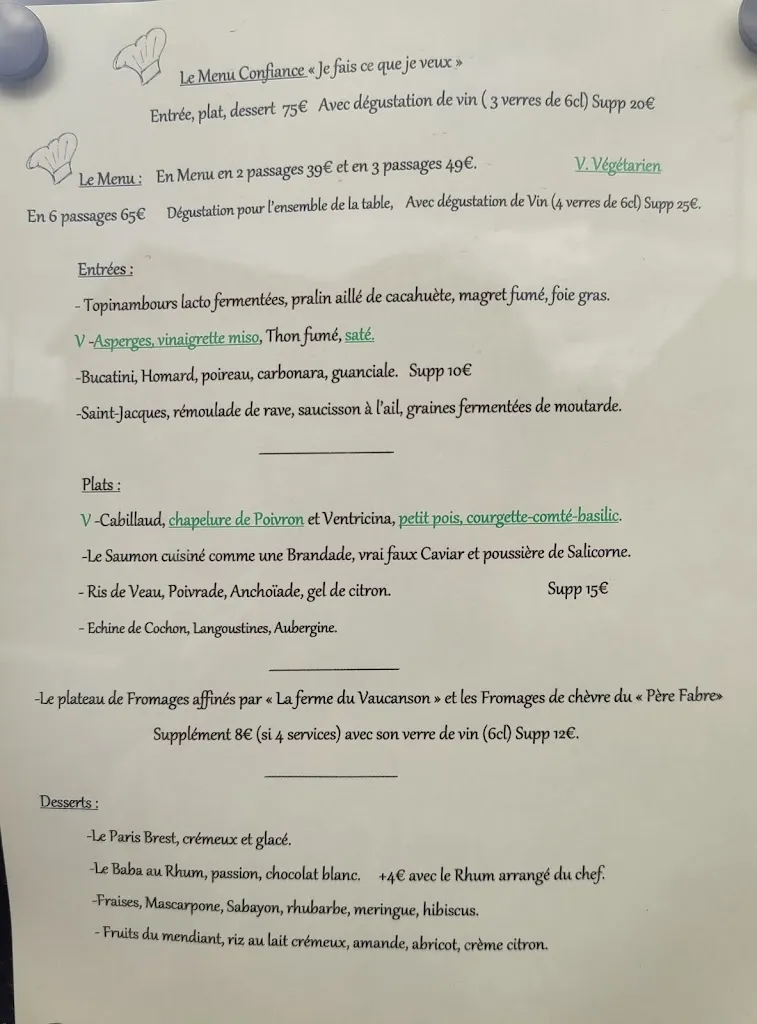 Le Menu Confiance « Je fais ce que je veux »
Entrée, plat, dessert 75€ Avec dégustation de vin ( 3 verres de 6cl) Supp 20€
Le Menu : En Menu en 2 passages 39€ et en 3 passages 49€. V. Végétarien
En 6 passages 65€ Dégustation pour l'ensemble de la table, Avec dégustation de Vin (4 verres de 6cl) Supp 25€.
Entrées :
- Topinambours lacto fermentées, pralin aillé de cacahuète, magret fumé, foie gras.
V -Asperges, vinaigrette miso, Thon fumé, saté.
-Bucatini, Homard, poireau, carbonara, guanciale. Supp 10€
-Saint-Jacques, rémoulade de rave, saucisson à l'ail, graines fermentées de moutarde.
Plats :
V -Cabillaud, chapelure de Poivron et Ventricina, petit pois, courgette-comté-basilic.
-Le Saumon cuisiné comme une Brandade, vrai faux Caviar et poussière de Salicorne.
- Ris de Veau, Poivrade, Anchoïade, gel de citron. Supp 15€
- Echine de Cochon, Langoustines, Aubergine.
-Le plateau de Fromages affinés par « La ferme du Vaucanson » et les Fromages de chèvre du « Père Fabre»
Supplément 8€ (si 4 services) avec son verre de vin (6cl) Supp 12€.
Desserts :
-Le Paris Brest, crémeux et glacé.
-Le Baba au Rhum, passion, chocolat blanc. +4€ avec le Rhum arrangé du chef.
-Fraises, Mascarpone, Sabayon, rhubarbe, meringue, hibiscus.
- Fruits du mendiant, riz au lait crémeux, amande, abricot, crème citron.